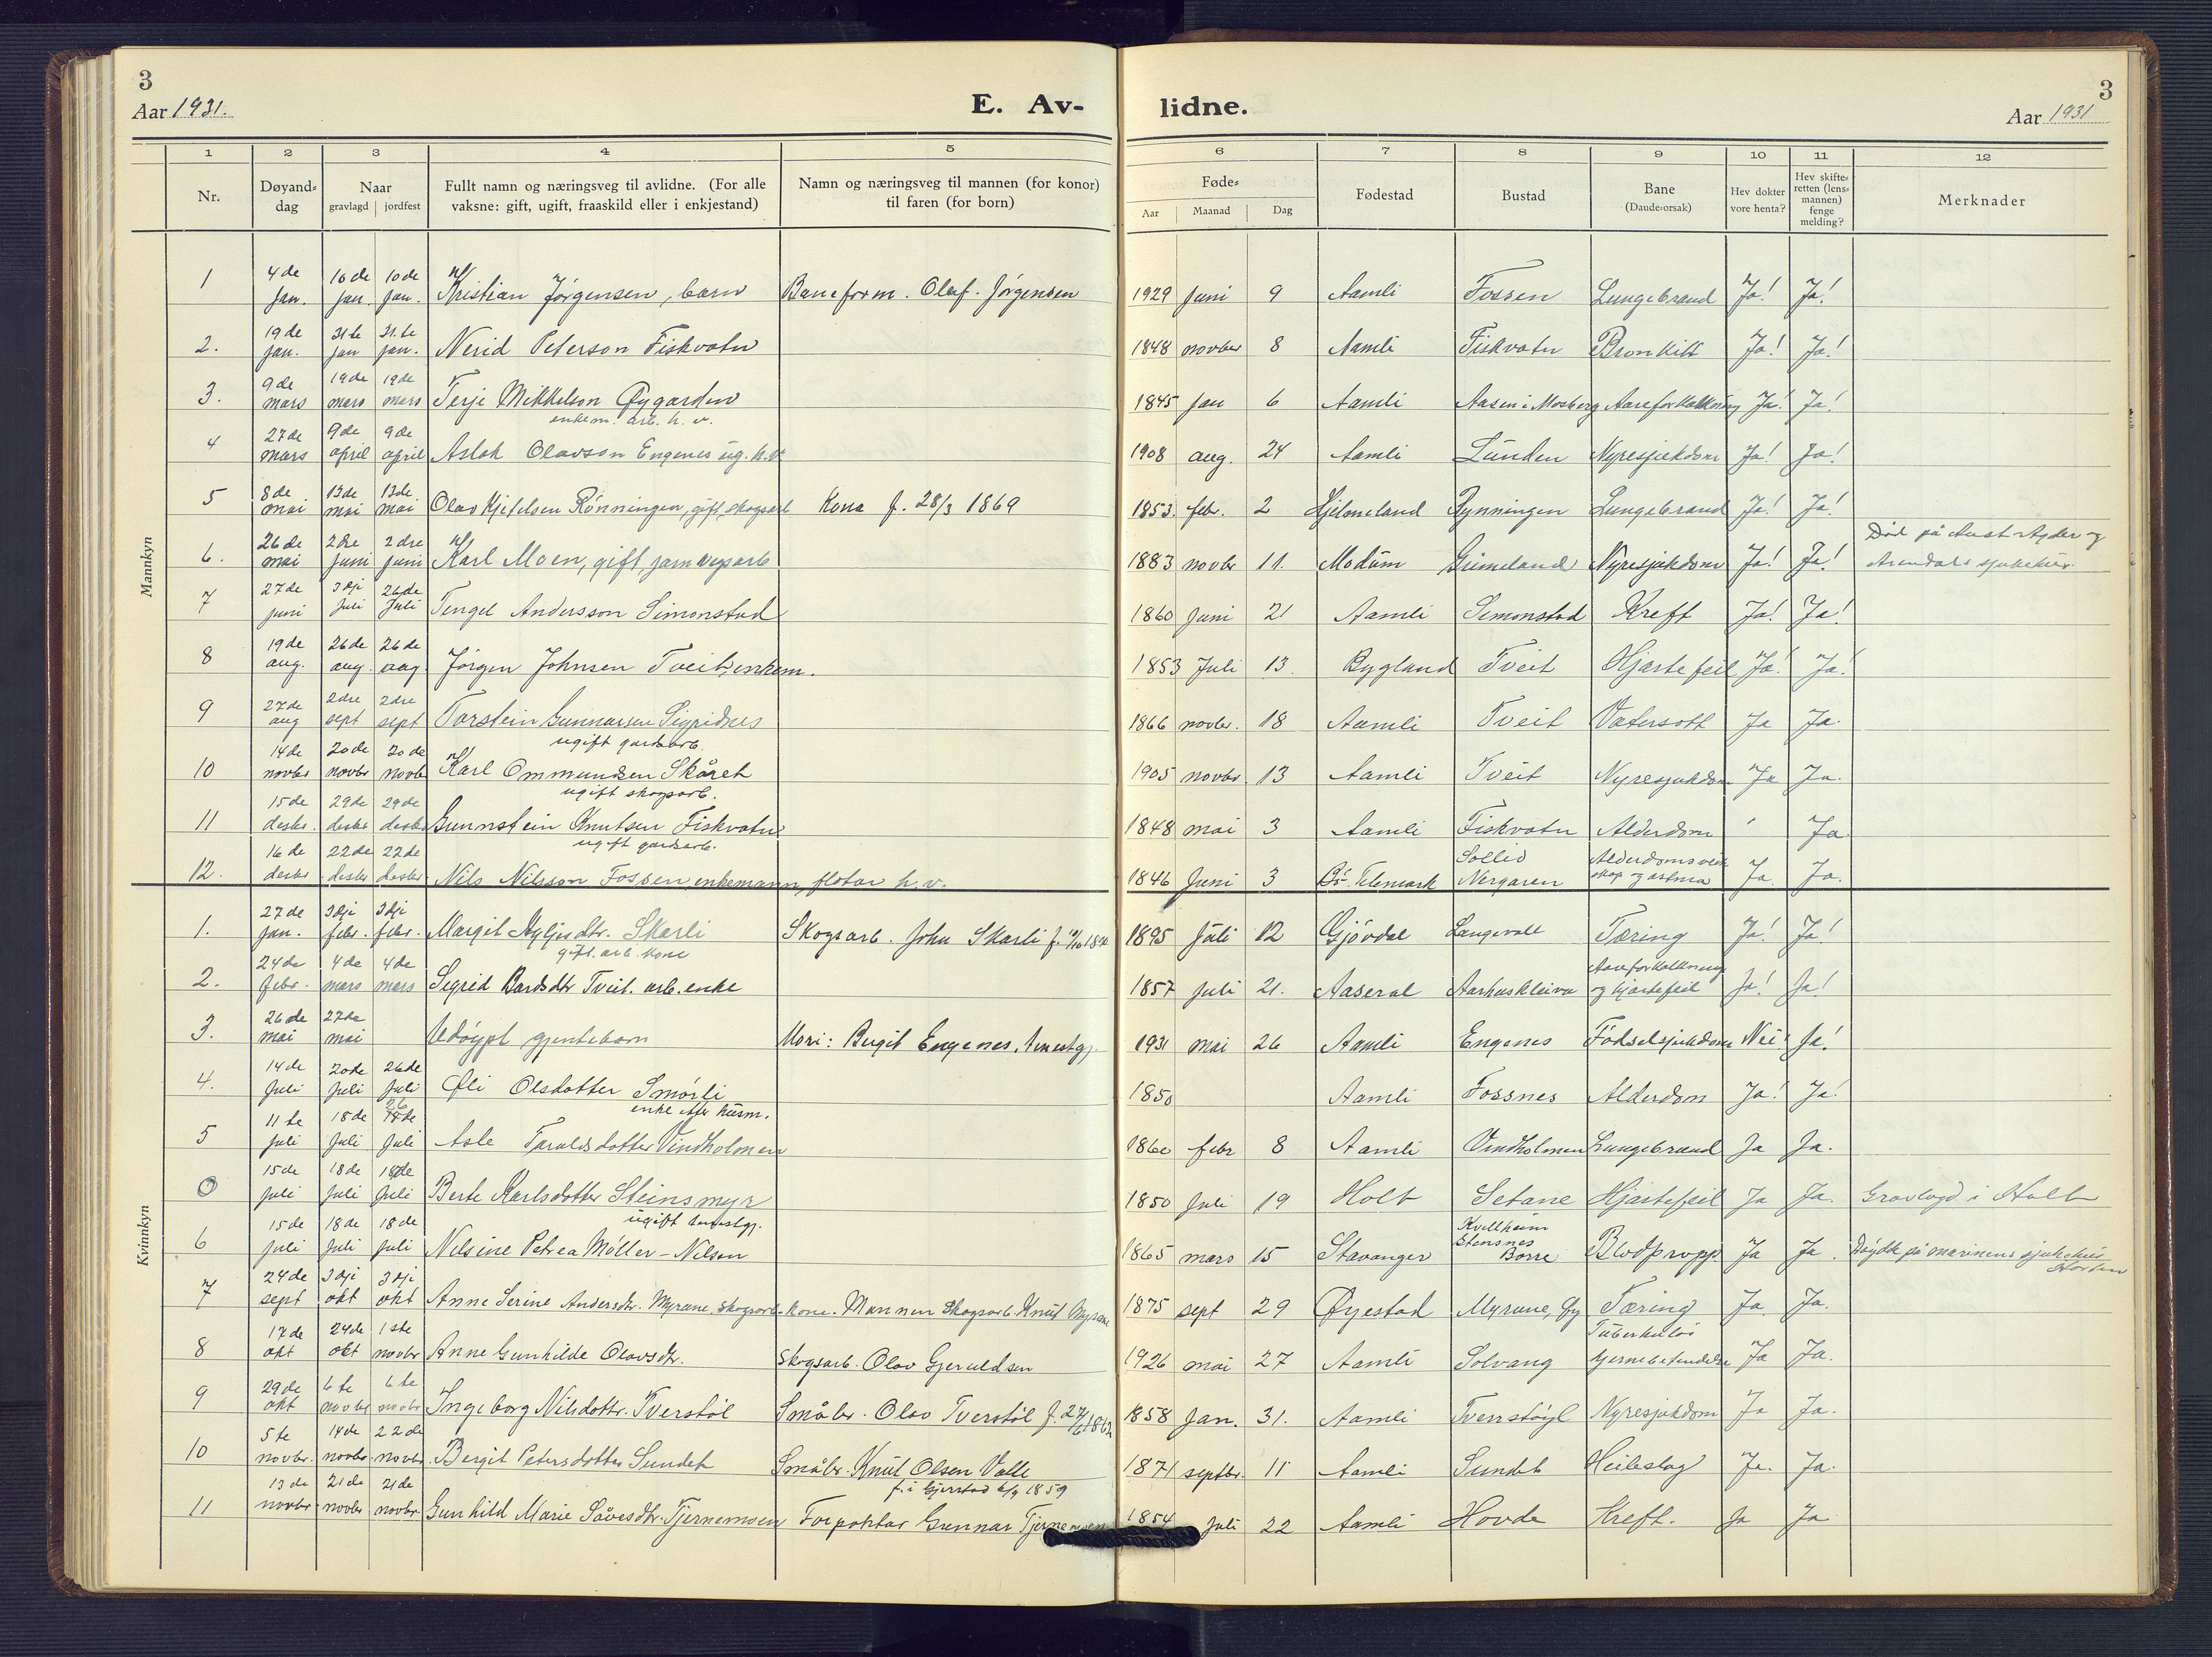 3
Aar 1931.
E. Av-
lidne.
3
Aar 1931
1 2 3 4 5 6 7 8 9 10 11 12
Nr.
Døyand-
dag
Naar
gravlagd jordfest
Fullt namn og næringsveg til avlidne. (For alle
vaksne: gift, ugift, fraaskild eller i enkjestand)
Namn og næringsveg til mannen (for konor)
til faren (for born)
Føde-
Aar Maanad Dag
Fødestad
Bustad
Bane
(Daude-orsak)
Hev dokter
vore henta?
Hev skifte-
retten (lens-
mannen)
fenge
melding?
Merknader
Mannkyn
1 4de jan. 10de jan. 10de jan. Kristian Jørgensen, barn Baneform. Olaf Jørgensen 1929 Juni 9 Aamli Fossen Lungebrand Ja! Ja!
2. 19de jan. 31te jan 31.te jan. Nerid Peterson Fiskvatn 1848 novber 8 Aamli Fiskvatn Bronkitt Ja! Ja!
3. 9de mars 19de mars 19de mars Terje Mikkelson Øygarden 1845 jan 6 Aamli Aasen i Mosberg Aareforkalkning Ja! Ja!
enkem. arb. h. v.
4 27de mars 9de april 9de april Aslak Olavson Engenes ug. h.v. 1908 aug. 24 Aamli Lunden Nyresjukdom Ja! Ja!
5 8de mai 13de mai 13de mai Olav Kjetelsen Rønningen, gift, skogsarb Kona f. 28/3 1869 1853. febr. 2 Hjelmeland Rynningen Lungebrand Ja! Ja!
6. 26de mai 2dre juni 2dre juni Karl Moen, gift, jarnvegsarb 1883 novbr 11. Modum Grimeland Nyresjukdom Ja! Ja! Død på Aust-Agder og
Arendals sjukehus.
7 27de juni 3dji Juli 26de Juli Tengel Andersson Simonstad 1860 Juni 21 Aamli Simonstad Kreft Ja! Ja!
8 19de aug. 26de aug. 26de aug. Jørgen Johnsen Tveit, enkem. 1853 Juli 13. Bygland Tveit Hjartefeil Ja! Ja!
9 27de aug 2dre sept 2dre sept Torstein Gunnarsen Sigridnes 1866 novbr. 18 Aamli Tveit Vatersott Ja Ja.
ugift gardsarb.
10 14de novbr 20de novbr 20de novb Karl Ommundsen Skåret 1905 novbr 13 Aamli Tveit Nyresjukdom Ja Ja.
ugift skogsarb.
11 15de desbr. 29de desbr 29de desbr Gunnstein Knutsen Fiskvatn 1848 mai 3 Aamli Fiskvatn Alderdom Ja
ugift gardsarb.
12. 16de desbr 22de desbr 22de desbr Nils Nilsson Fossen enkemann, fløtar h.v. 1846 Juni 3 Bø. Telemark Sollid
Nergaren Ja. Ja.
Kvinnkyn
1. 27de jan. 3dji febr. 3dji febr. Margit dtr. Skarli Skogsarb. John Skarli 1895 Juli 12 Gjøvdal Langevatt Tæring Ja! Ja!
gift. arb. kone
2. 24de febr. 4de mars 4de mars Sigrid Bardsdtr Tveit. arb. enke 1857 juli 21. Aaseral Aarhuskleiva Aareforkalkning
og hjartefeil Ja! Ja!
3. 26de mai 27de mai Udøypt gjentebarn Mori: Bergit Engenes, 1931 mai 26 Aamli Engenes Fødselsjukdom Nei! Ja!
4. 14de Juli 20de Juli 26de Juli Oli Olsdotter Smørli 1850 Aamli Fossnes Alderdom Ja! Ja!
enke efter husm.
5 11te juli 18de Juli 26 juli Asle Taraldsdotter Vindholmen 1860 febr 8 Aamli Vindholmen Lungebrand Ja Ja.
0 15de juli 18de Juli 18de Juli Berte Karlsdotter Steinsmyr 1850 Juli 19 Holt Setane Hjartefeil Ja Ja. Gravlagd i Holt
ugift
6 15de juli 18de juli 18de juli Nilsine Petrea Møller-Nilsen 1865 mars 15 Stavanger Kvellheim
Stensnes
Borre Blodpropp. Ja Ja. Døydde på marinens sjukehus
Horten
7 24de sept 3dji okt 3dji okt Anne Serine Andersdtr. Myrane, skogsarb. kone. Mannen skogsarb. Knut Myrane 1875 sept 29 Øyestad Myrane, Tæring Ja Ja.
8 17de okt 24de okt 1ste novbr Anne Gunhilde Olavsdtr. Skogsarb. Olav Gjeruldsen 1926 mai 27 Aamli Solvang Tuberkuløs
hjernebetendelse Ja Ja.
9 29de okt 6te novbr 6te novbr Ingeborg Nilsdottr. Tverstøl Småbr. Olav Tverstøl f. 27/6 1862 1858 Jan. 31. Aamli Tverrstøyl Nyresjukdom Ja Ja.
10 5te novbr. 14de novbr. 22de novbr. Bergit Petersdotter Sundet Småbr. Knut Olsen Valle 1871 septbr. 11 Aamli Sundet Heileslag Ja. Ja.
f. i Gjerstad 6/9 1859
11 13de novbr. 21de novbr. 21de novbr. Gunhild Marie Såvesdtr. Tjernemoen Forpaktar Gunnar Tjernemoen 1854 Juli 22 Aamli Hovde Kreft. Ja Ja